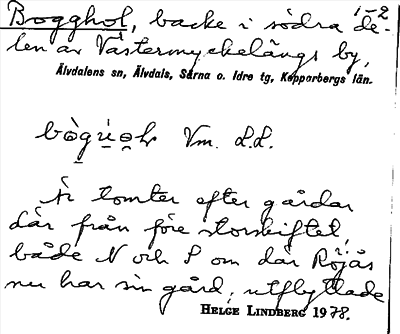 Bogghol, backe i södra de- 1-2
len av Västermyckelängs by,
Älvdalens sn, Älvdals, Särna o. Idre tg, Kopparbergs län.
Vm. L.L.
Är tomter efter gårdar
där från före storskiftet,
både N och S om där Röjås
nu har sin gård, utflyttade
HELGE LINDBERG 1978.